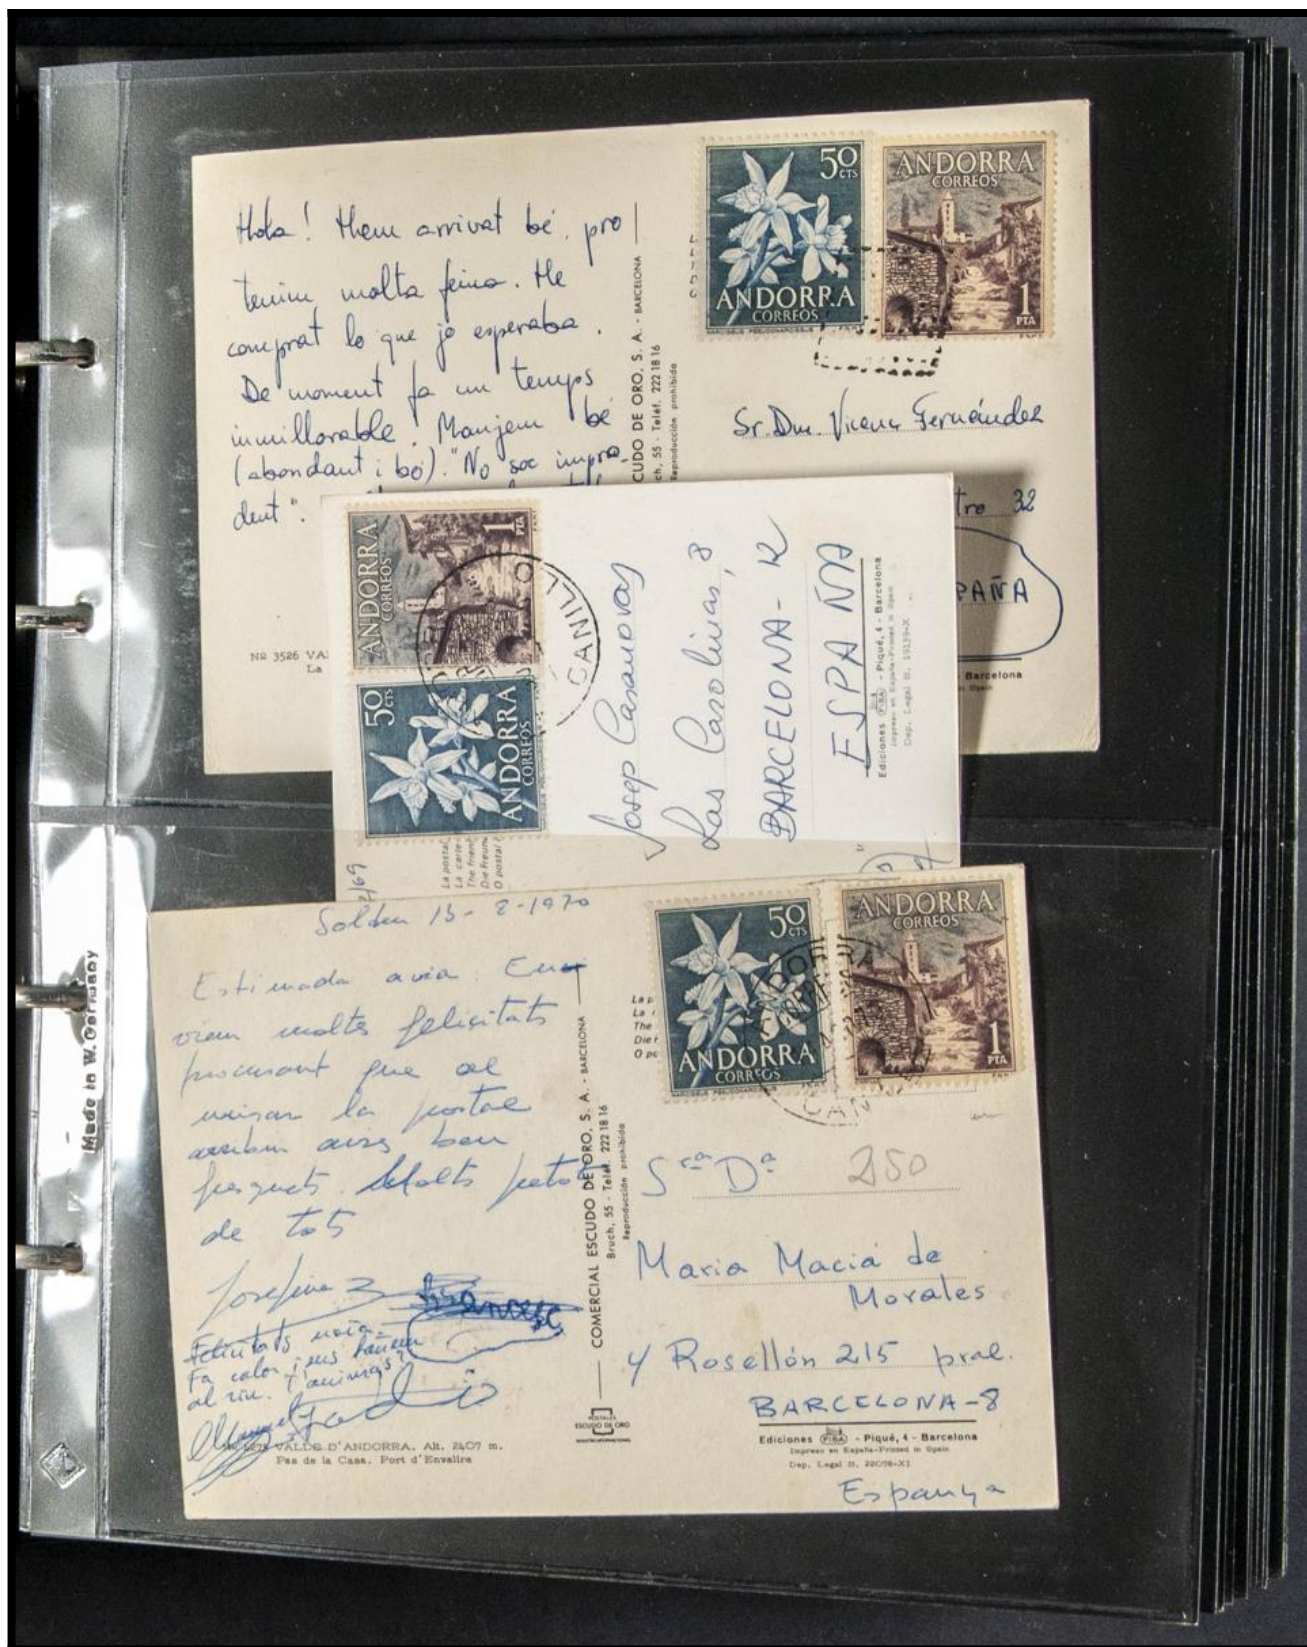 Hola! Hem arrivat bé, pro
tenim molta feina. He
comprat lo que jo esperaba.
De moment fa un temps
inmillorable! Manjem bé
(abondant i bó). "No soc impru-
dent".
Nº 3526 VA
La
CUDO DE ORO, S. A. - BARCELONA
ch, 55 - Teléf. 222 18 16
Reproducción prohibida
50 CTS
ANDORRA
CORREOS
ANDORRA
CORREOS
1
PTA
Sr. Dn. Vicenç Fernández
tro 32
PAÑA
Barcelona
in Spain
ANDORRA
CORREOS
1
PTA
50 CTS
ANDORRA
CORREOS
CANILLO
Josep Casanovas
Las Carolinas, 8
BARCELONA - 12
ESPAÑA
Ediciones FISA - Piqué, 4 - Barcelona
Impreso en España-Printed in Spain
Dep. Legal B. 19139-X
La postal
La carte
The frien
Die Freun
O postal
/69
Soldeu 13 - 8 - 1970
Estimada avia: Enviem moltes felicitats
procurant que al
la postal
arribin ben
fresquets. Molts petons
de tots
Josefina
Francesc
Felicitats
Fa calor i ens bañem
al riu.
Nº 4275 VALLS D'ANDORRA. Alt. 2407 m.
Pas de la Casa. Port d'Envalira
COMERCIAL ESCUDO DE ORO, S. A. - BARCELONA
Bruch, 55 - Teléf. 222 18 16
Reproducción prohibida
POSTALES
ESCUDO DE ORO
La p
La c
The
Die F
O po
50 CTS
ANDORRA
CORREOS
ANDORRA
CORREOS
1
PTA
250
Sra Da
Maria Maciá de
Morales
Rosellón 215 pral.
BARCELONA-8
Ediciones FISA - Piqué, 4 - Barcelona
Impreso en España-Printed in Spain
Dep. Legal B. 22076-XI
Espanya
Made in W. Germany